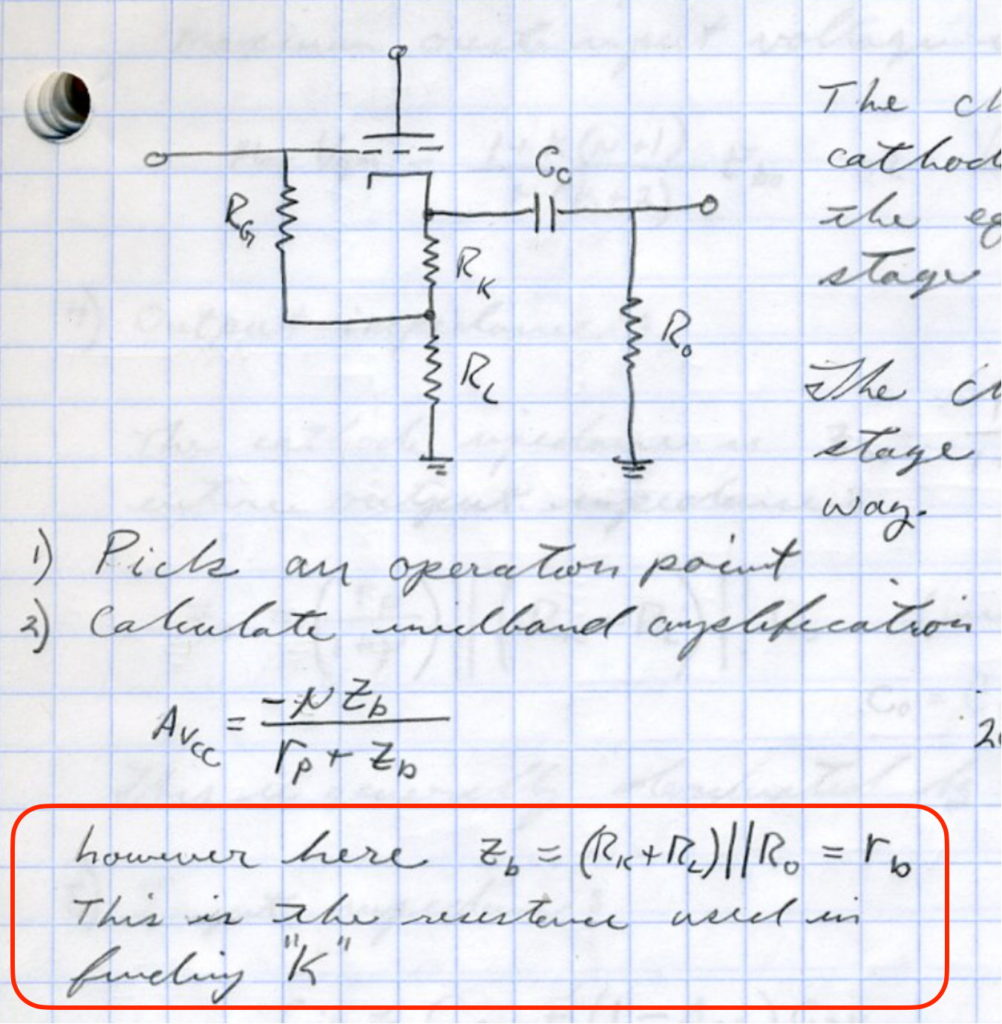 The c
cathod
the eq
stage
C₀
R_G
R_K
R_L
R₀
The c
stage
way.
1) Pick an operation point
2) Calculate midband amplification
A_Vcc = -μ Z_b / r_p + Z_b
however here Z_b = (R_K+R_L)||R₀ = r_b
This is the resistance used in
finding "K"